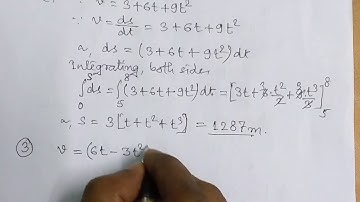 ∵ v = 3+6t+9t²
∵ v = ds/dt = 3+6t+9t²
a, ds = (3+6t+9t²)dt
Integrating, both sides
∫₀ˢ ds = ∫₅⁸ (3+6t+9t²)dt = [3t + 6·t²/2 + 9·t³/3]₅⁸
a, s = 3[t+t²+t³] = 1287m.
③ v = (6t − 3t²)